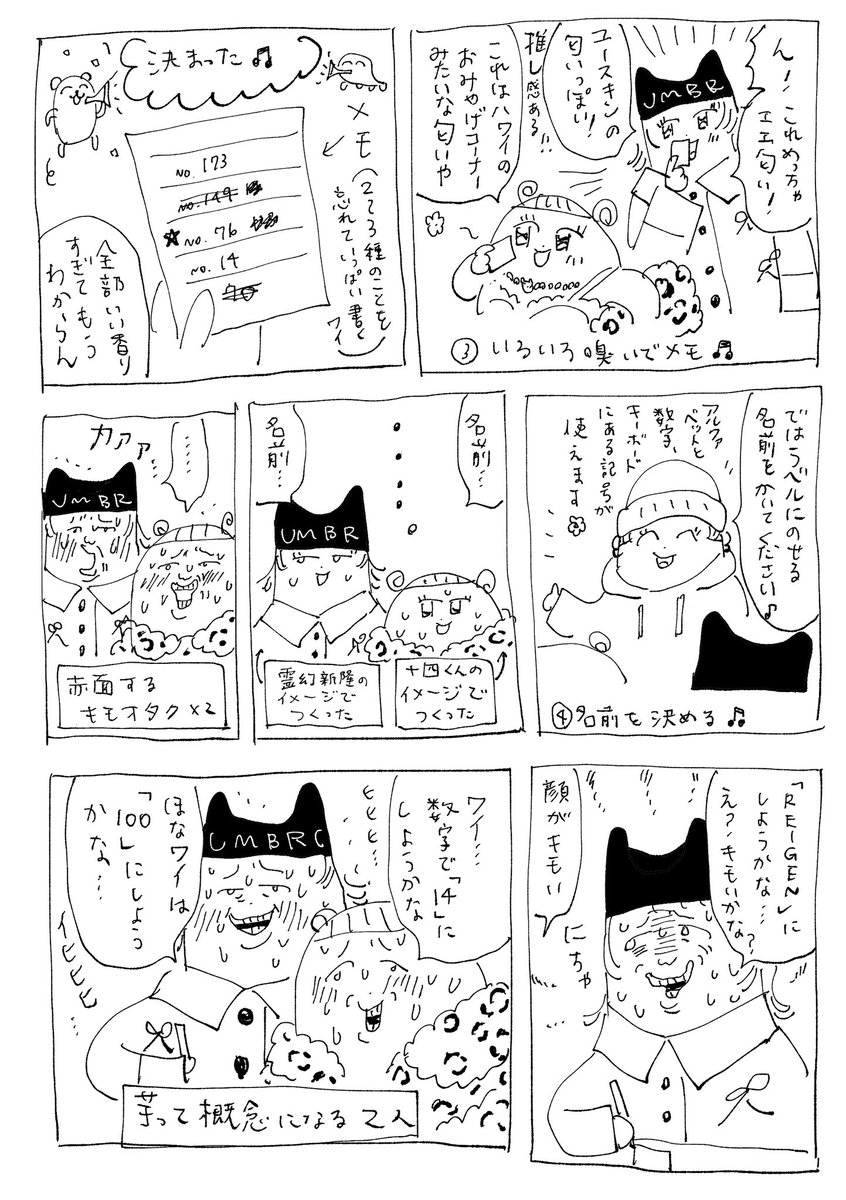 ん!これめっちゃ
エエ匂い!
UMBR
ユースキンの
匂いっぽい!
推し感ある!!
これはハワイの
おみやげコーナー
みたいな匂いや
③いろいろ嗅いでメモ♬
決まった♫
メモ
(2て3種のことを
忘れていっぱい書く
ワイ)
no.173
no.149
★no.76
no.14
全部いい香り
すぎてもう
わからん
ではラベルにのせる
名前をかいてください♪
アルファ
ベットと
数字、
キーボード
にある記号が
使えます
④名前を決める♬
名前…
名前…
UMBR
十四くんの
イメージで
つくった
霊幻新隆の
イメージで
つくった
……
カァァ
UMBR
赤面する
キモオタク×2
「REIGEN」に
しようかな…
え?キモいかな?
顔がキモい
にちゃ
ワイ…
数字で「14」に
しようかな
ヒヒヒ…
UMBRO
ほなワイは
「100」にしよう
かな…
イヒヒヒ…
芋って概念になる2人